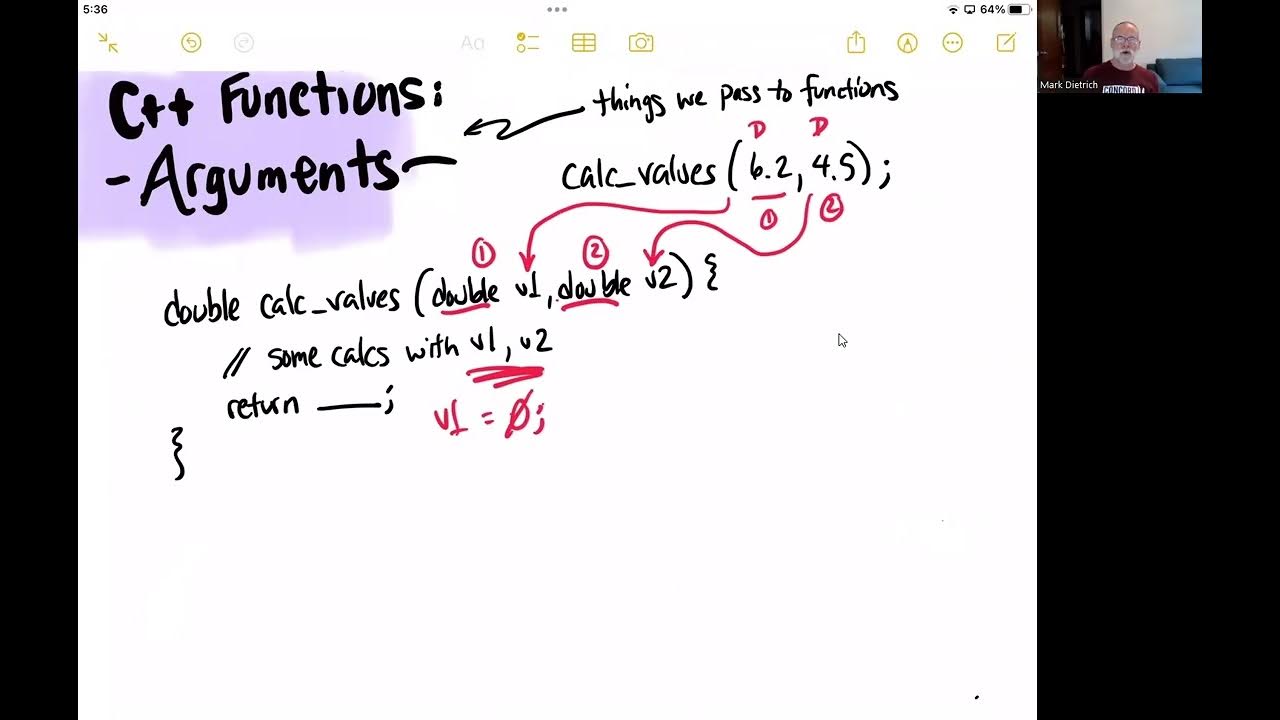 5:36
64%
Aa
Mark Dietrich
CONCORD
C++ Functions:
- Arguments
things we pass to functions
D D
calc_values (6.2, 4.5);
① ②
① ②
double calc_values (double v1, double v2) {
// some calcs with v1, v2
return ___;
v1 = Ø;
}